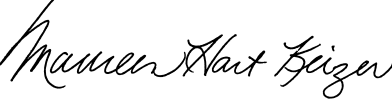 Maureen Hart Keizer